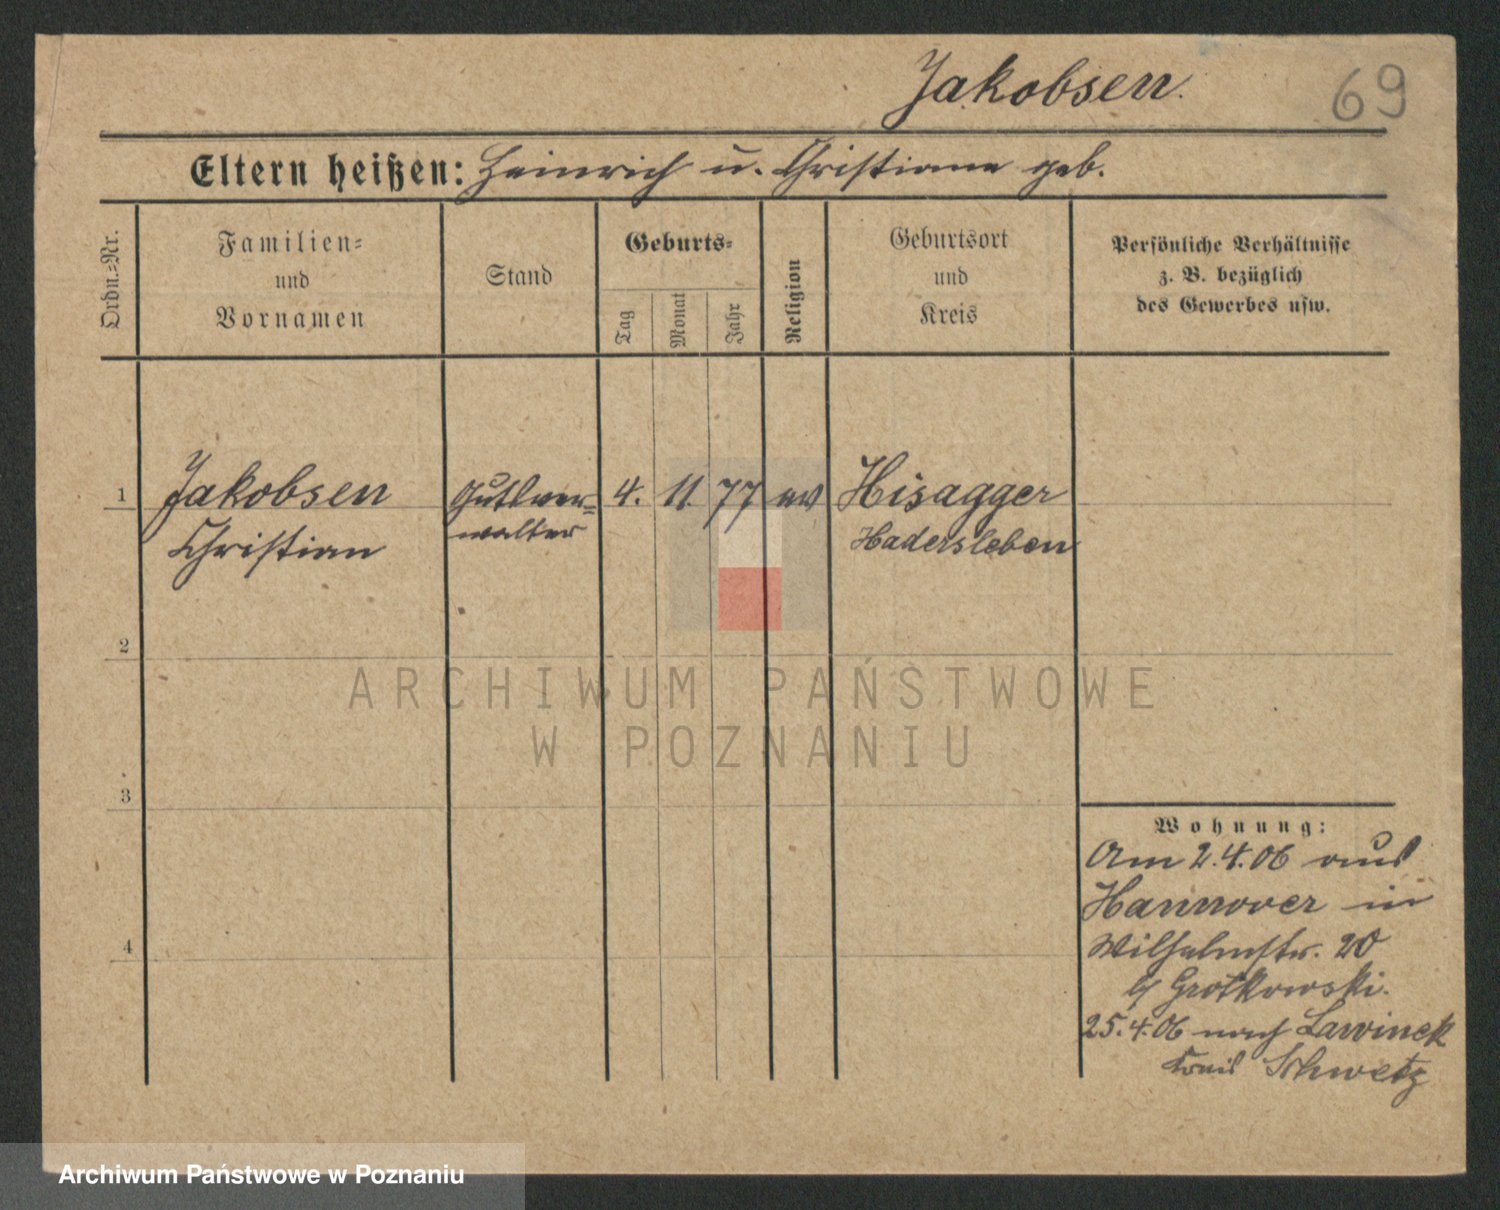 Jakobsen.
69
Eltern heißen: Heinrich u. Christiane geb.
Ordn.=Nr.
Familien=
und
Vornamen
Stand
Geburts=
Tag
Monat
Jahr
Religion
Geburtsort
und
Kreis
Persönliche Verhältnisse
z. B. bezüglich
des Gewerbes usw.
1 Jakobsen Gutsver= 4. 11. 77 ev Hisagger
Christian walter Hadersleben
2
3
4
Wohnung:
Am 2.4.06 aus
Hannover in
Wilhelmstr. 20
b/ Grotkowski.
25.4.06 nach Lawinek
Kreis Schwetz
ARCHIWUM PAŃSTWOWE
W POZNANIU
Archiwum Państwowe w Poznaniu